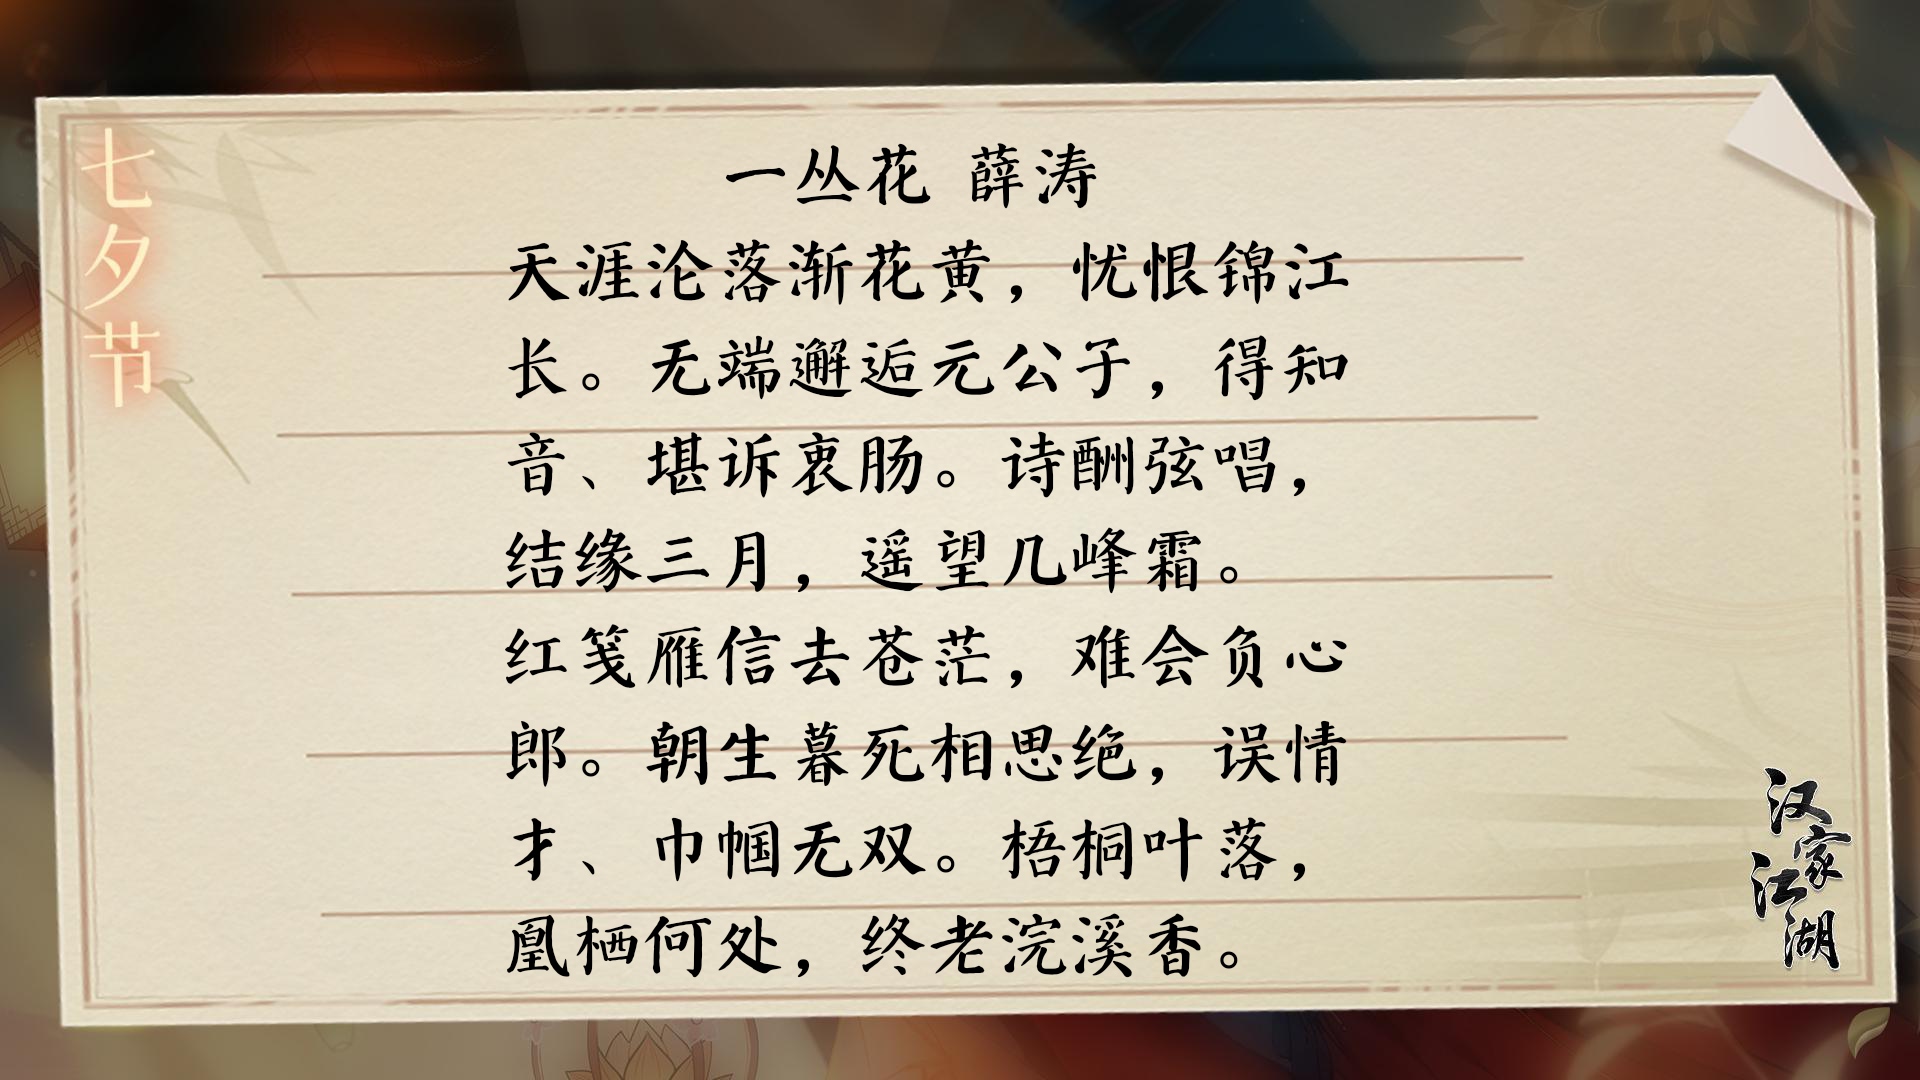 七夕节
一丛花 薛涛
天涯沦落渐花黄，忧恨锦江
长。无端邂逅元公子，得知
音、堪诉衷肠。诗酬弦唱，
结缘三月，遥望几峰霜。
红笺雁信去苍茫，难会负心
郎。朝生暮死相思绝，误情
才、巾帼无双。梧桐叶落，
凰栖何处，终老浣溪香。
汉家江湖